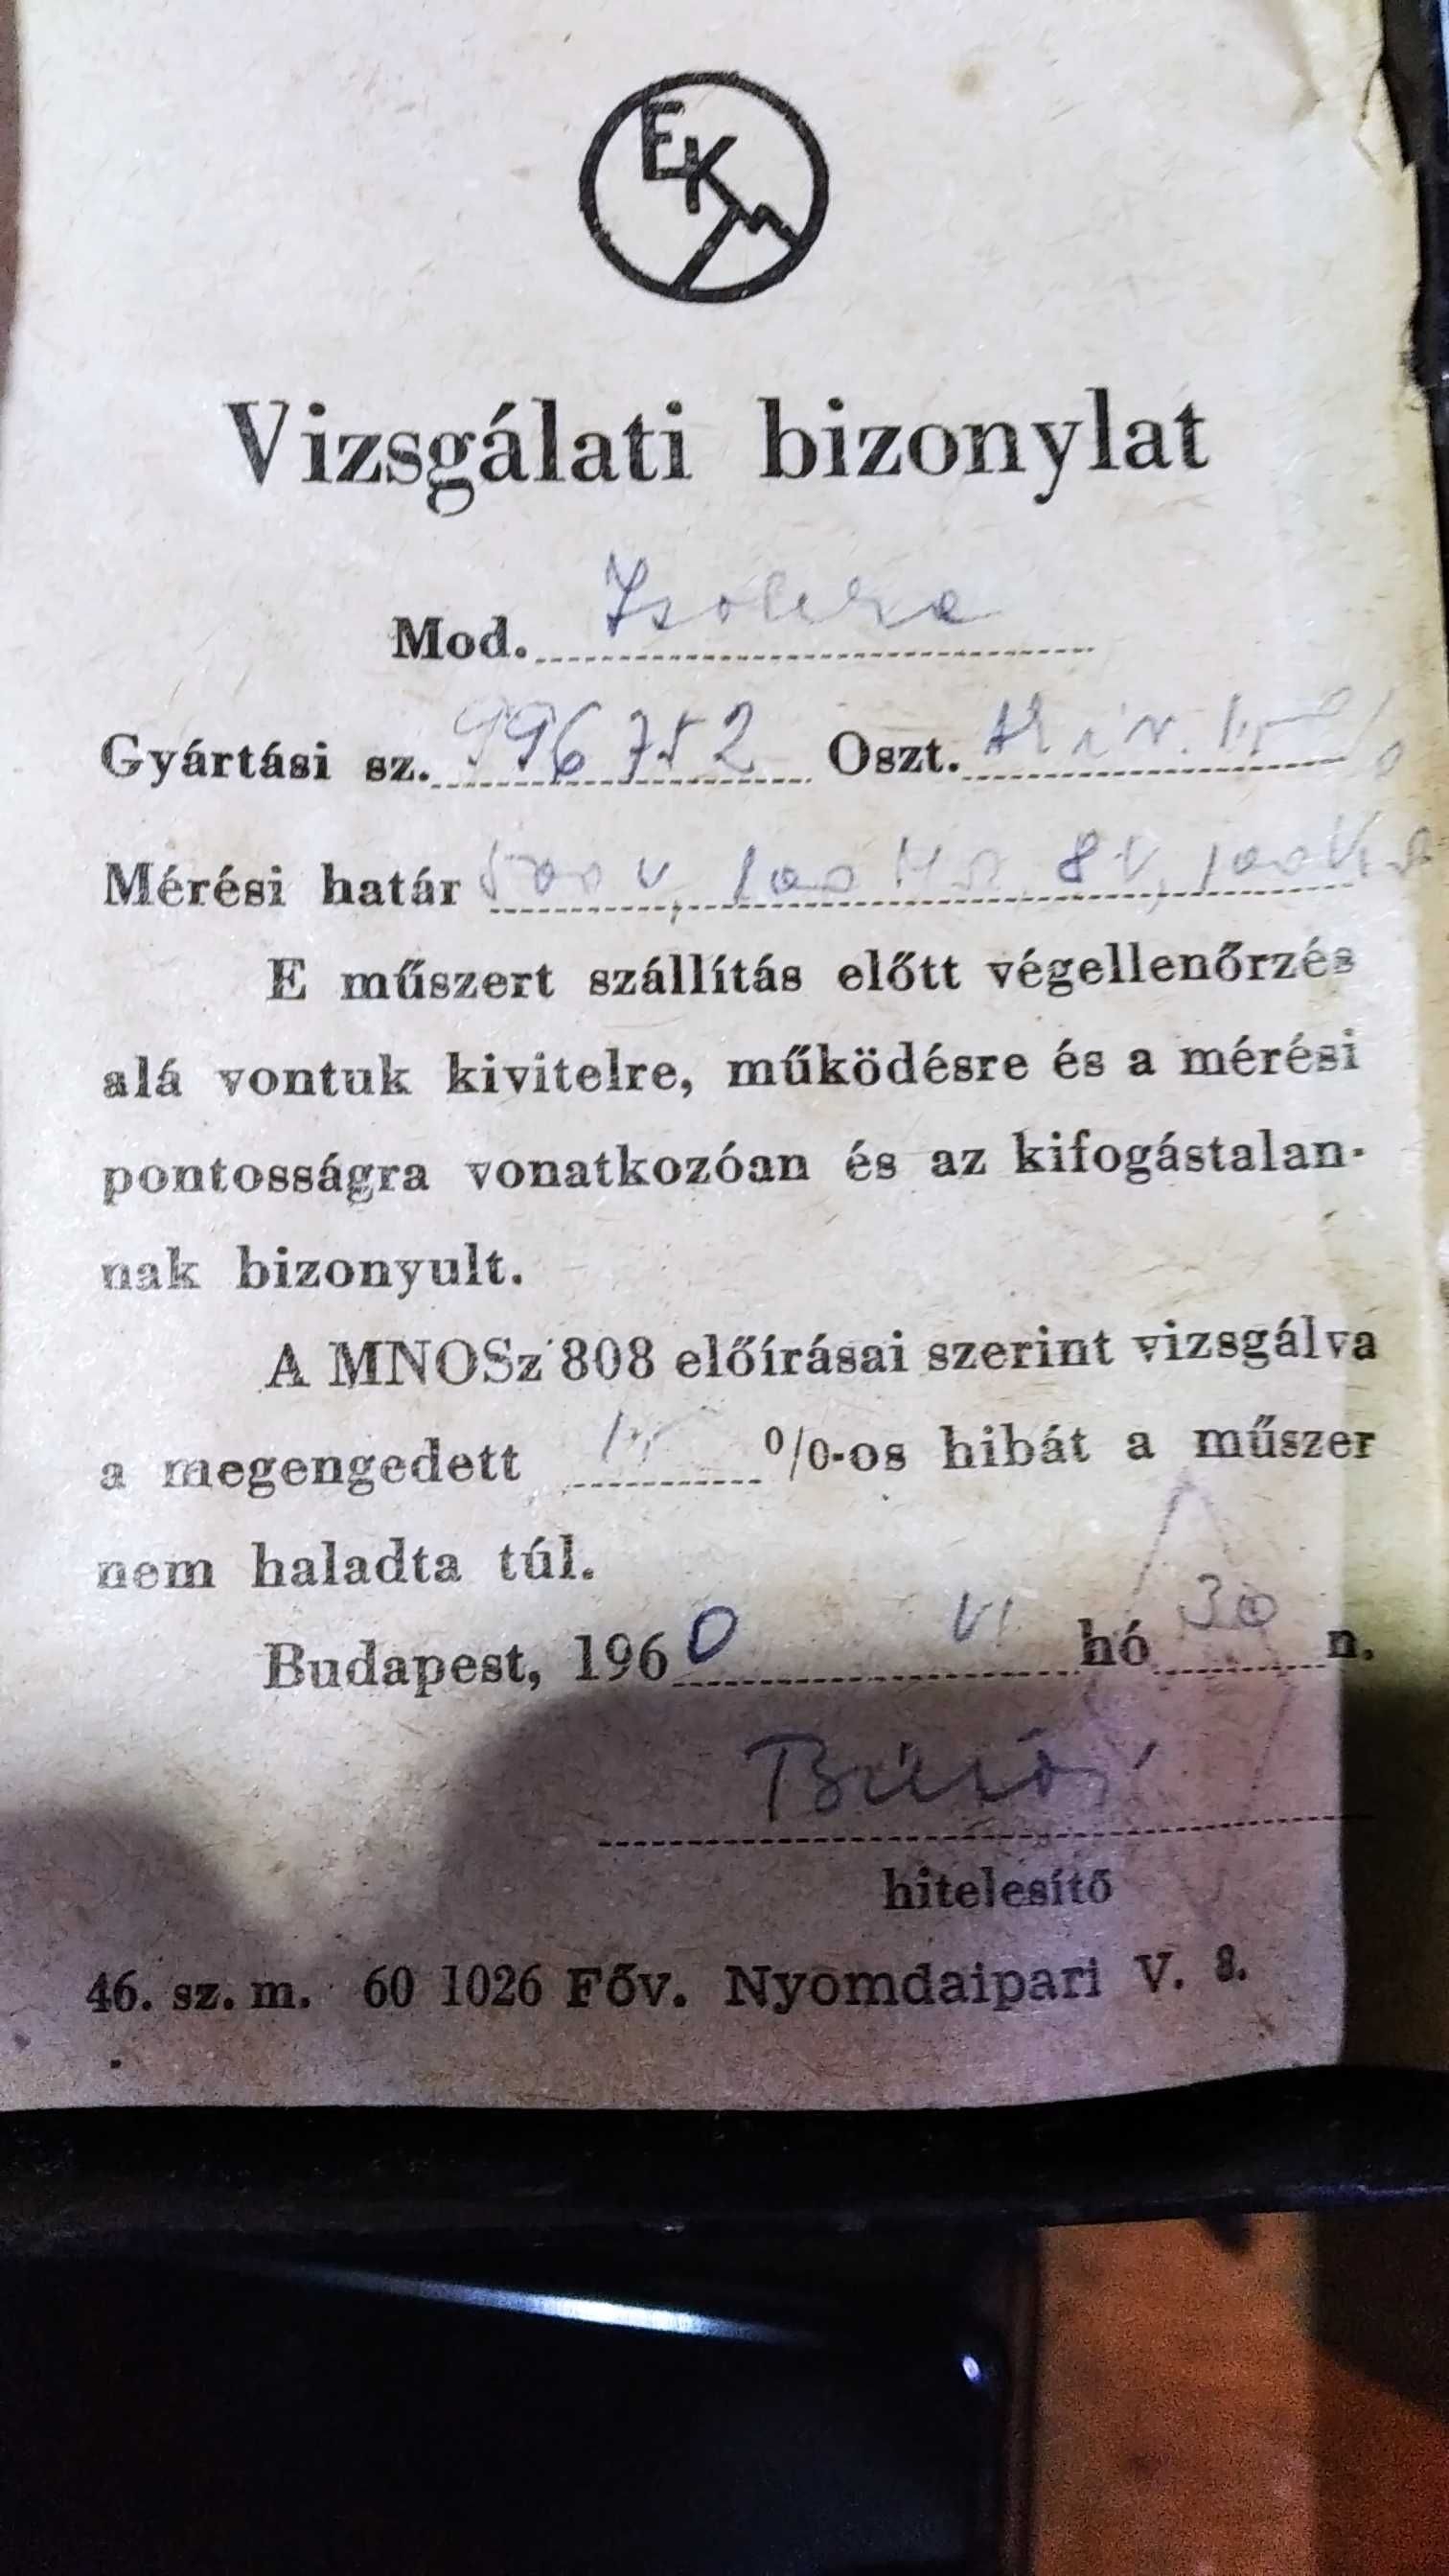 EKM
Vizsgálati bizonylat
Mod.
Gyártási sz. 996752 Oszt. 1,5%
Mérési határ 500 V, 100 MΩ 8V, 100kΩ
E műszert szállítás előtt végellenőrzés
alá vontuk kivitelre, működésre és a mérési
pontosságra vonatkozóan és az kifogástalan-
nak bizonyult.
A MNOSz 808 előírásai szerint vizsgálva
a megengedett 1,5 %-os hibát a műszer
nem haladta túl.
Budapest, 1960 VI hó 30 n.
hitelesítő
46. sz. m. 60 1026 Főv. Nyomdaipari V. 8.